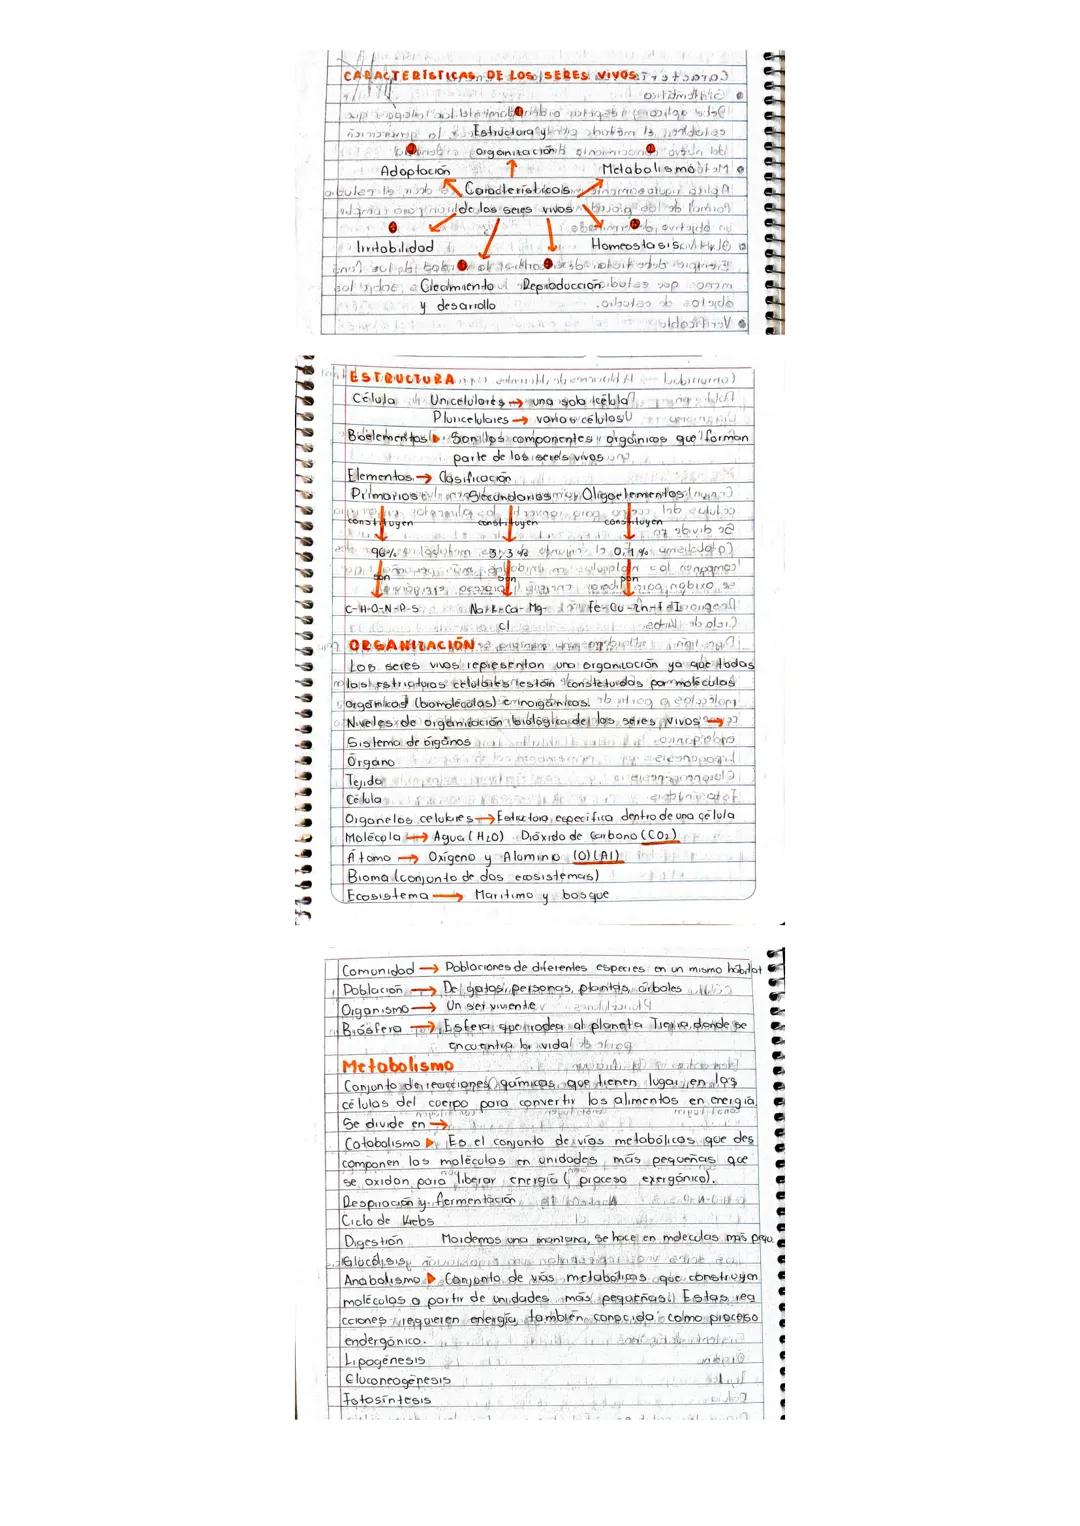 CARACTERÍSTICAS DE LOS SERES VIVOS
Estructura y
organización
Adaptación
Metabolismo
Características
de los seres vivos
Irritabilidad
Homeostasis
Crecimiento
y desarrollo
Reproducción
ESTRUCTURA
Célula Unicelulares → una sola célula
Pluricelulares → varias células
Bioelementos ▶ Son los componentes orgánicos que forman
parte de los seres vivos
Elementos → Clasificación
Primarios Secundarios Oligoelementos
constituyen constituyen constituyen
96% 3,3% 0.1%
son son son
C-H-O-N-P-S Na-K-Ca-Mg- Fe-Cu-Zn-F-I
Cl
ORGANIZACIÓN
Los seres vivos representan una organización ya que todas
las estructuras celulares están constituidas por moléculas
orgánicas (biomoléculas) e inorgánicas.
Niveles de organización biológica de los seres vivos →
Sistema de órganos
Órgano
Tejido
Célula
Organelos celulares → Estructura específica dentro de una célula
Molécula → Agua (H₂O) Dióxido de Carbono (CO₂)
Átomo → Oxígeno y Aluminio (O) (Al)
Bioma (conjunto de dos ecosistemas)
Ecosistema → Marítimo y bosque
Comunidad → Poblaciones de diferentes especies en un mismo hábitat
Población → De gatos, personas, plantas, árboles
Organismo → Un ser viviente
Biósfera → Esfera que rodea al planeta Tierra, donde se
encuentra la vida
Metabolismo
Conjunto de reacciones químicas que tienen lugar en las
células del cuerpo para convertir los alimentos en energía
Se divide en →
Catabolismo ▶ Es el conjunto de vías metabólicas que des
componen las moléculas en unidades más pequeñas que
se oxidan para liberar energía (proceso exergónico).
Respiración y fermentación
Ciclo de Krebs
Digestión Mordemos una manzana, se hace en moleculas mas pequ
Glucólisis
Anabolismo ▶ Conjunto de vías metabólicas que construyen
moléculas a partir de unidades más pequeñas. Estas rea
cciones requieren energía, también conocido como proceso
endergónico.
Lipogénesis
Gluconeogénesis
Fotosíntesis